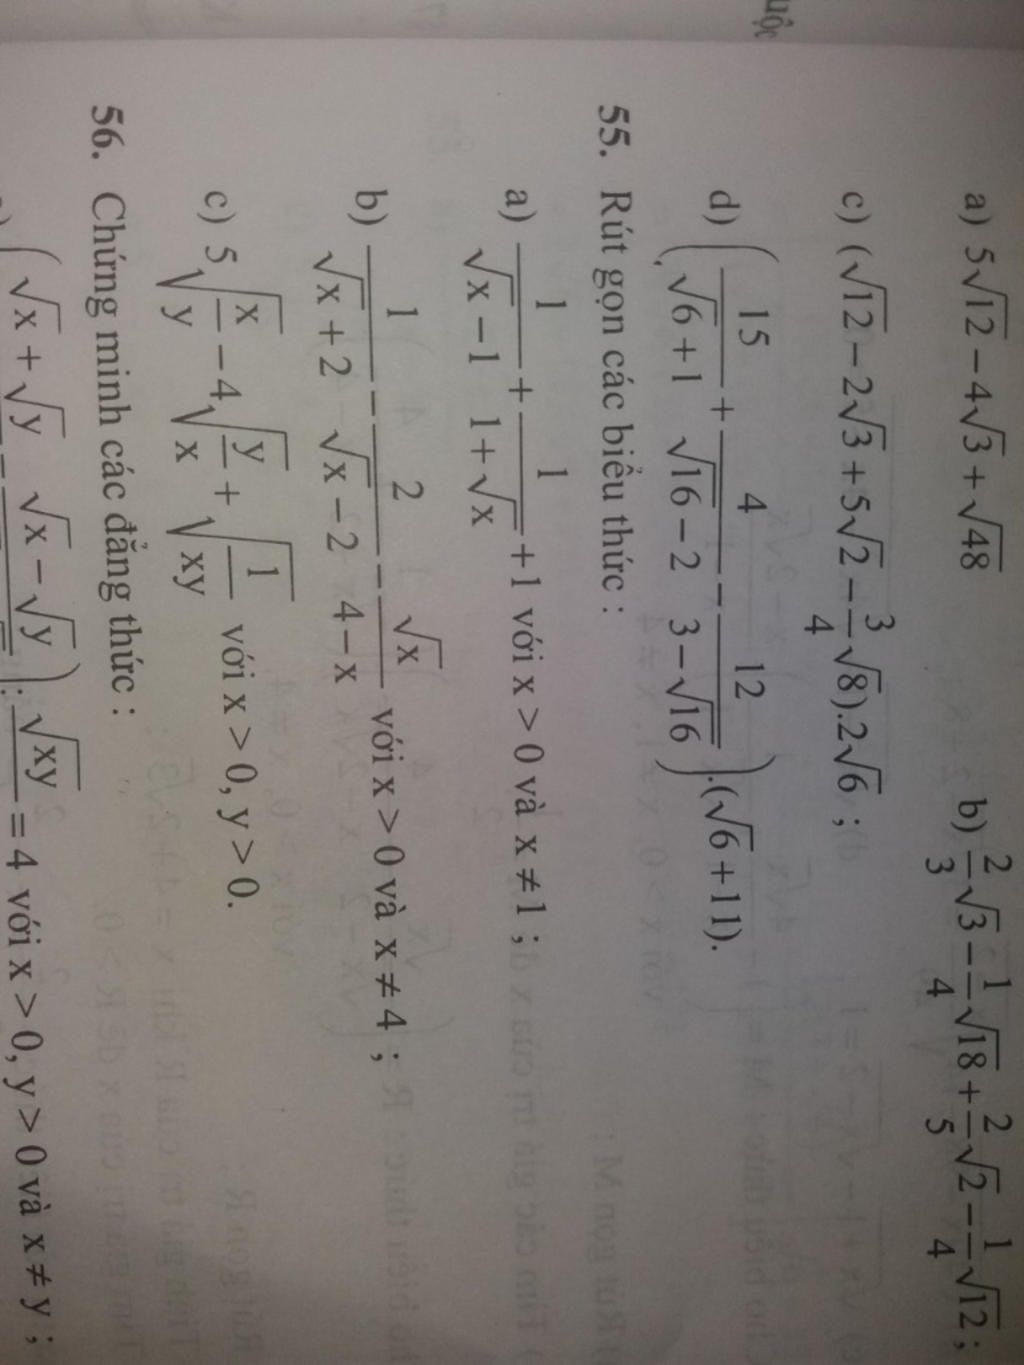 uộc
a) 5√12 − 4√3 + √48 b) 2/3 √3 − 1/4 √18 + 2/5 √2 − 1/4 √12 ;
c) (√12 − 2√3 + 5√2 − 3/4 √8).2√6 ;
d) (15/(√6 + 1) + 4/(√16 − 2) − 12/(3 − √16)).(√6 + 11).
55. Rút gọn các biểu thức :
a) 1/(√x − 1) + 1/(1 + √x) + 1 với x > 0 và x ≠ 1 ;
b) 1/(√x + 2) − 2/(√x − 2) − √x/(4 − x) với x > 0 và x ≠ 4 ;
c) 5√(x/y) − 4√(y/x) + √(1/xy) với x > 0, y > 0.
56. Chứng minh các đẳng thức :
(√x + √y − √x − √y) : √xy = 4 với x > 0, y > 0 và x ≠ y ;